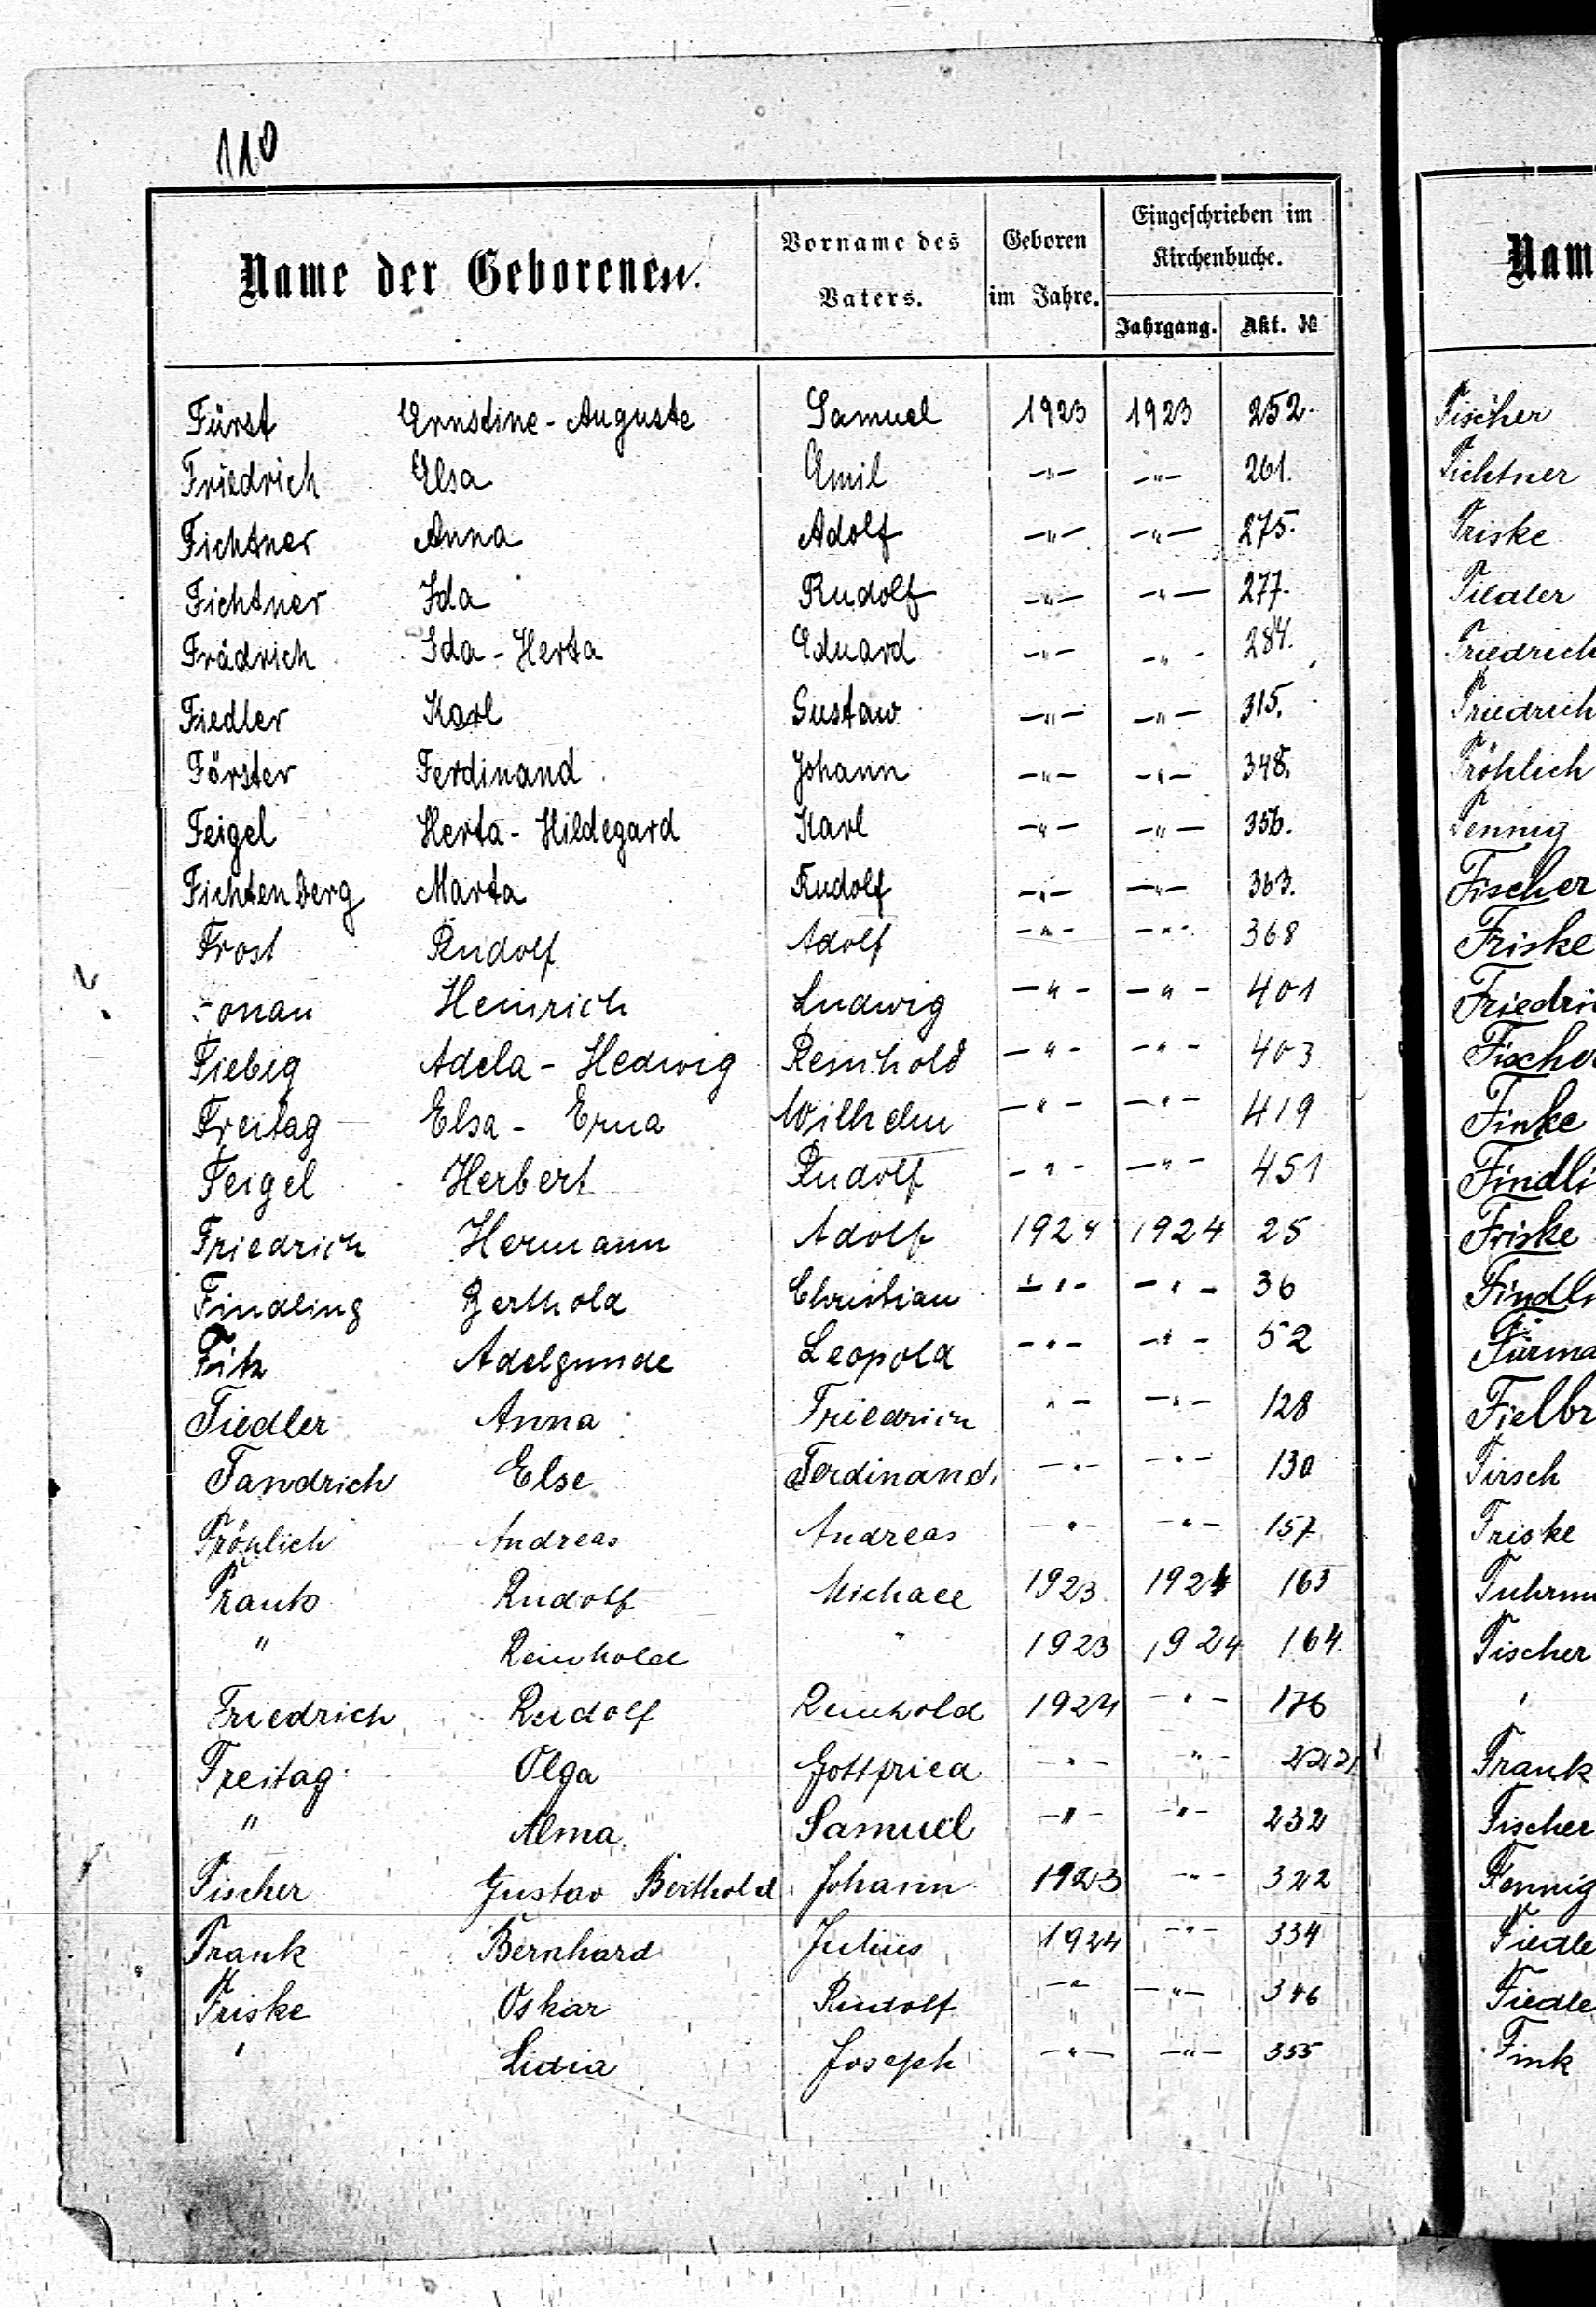 110
Name der Geborenen.
Vorname des Vaters.
Geboren im Jahre.
Eingeschrieben im Kirchenbuche.
Jahrgang. Akt. №
Fürst Ernstine - Auguste Samuel 1923 1923 252.
Friedrich Elsa Emil -"- -"- 261.
Fichtner Anna Adolf -"- -"- 275.
Fichtner Ida Rudolf -"- -"- 277.
Frädrich Ida - Herta Eduard -"- -"- 284.
Fiedler Karl Gustaw -"- -"- 315.
Förster Ferdinand Johann -"- -"- 348.
Feigel Herta - Hildegard Karl -"- -"- 356.
Fichtenberg Marta Rudolf -"- -"- 363.
Frost Rudolf Adolf -"- -"- 368
Heinrich Ludwig -"- -"- 401
Fiebig Adela - Hedwig Reinhold -"- -"- 403
Freitag Elsa - Erna Wilhelm -"- -"- 419
Feigel Herbert Rudolf -"- -"- 451
Friedrich Hermann Adolf 1924 1924 25
Findling Berthold Christian -"- -"- 36
Fitz Adelgunde Leopold -"- -"- 52
Fiedler Anna Friedrich "- -"- 128
Fandrich Else Ferdinand. -"- -"- 130
Fröhlich Andreas Andreas -"- -"- 157
Frank Rudolf Michael 1923 1924 163
" Reinhold " 1923 1924 164.
Friedrich Rudolf Reinhold 1924 -"- 176
Freitag Olga Gottfried -"- "-
" Alma Samuel -"- -"- 232
Fischer Gustav Berthold Johann 1923 -"- 322
Frank Bernhard Julius 1924 -"- 334
Friske Oskar Rudolf -"- -"- 346
" Lidia Joseph -"- -"- 355
Nam
Fischer
Fichtner
Friske
Fiedler
Friedrich
Friedrich
Fröhlich
Fennig
Fischer
Friske
Friedri
Fischer
Finke
Findli
Friske
Findli
Furma
Fielbr
Firsch
Friske
Fuhrm
Fischer
"
Frank
Fischer
Fennig
Fiedle
Fiedle
Fink